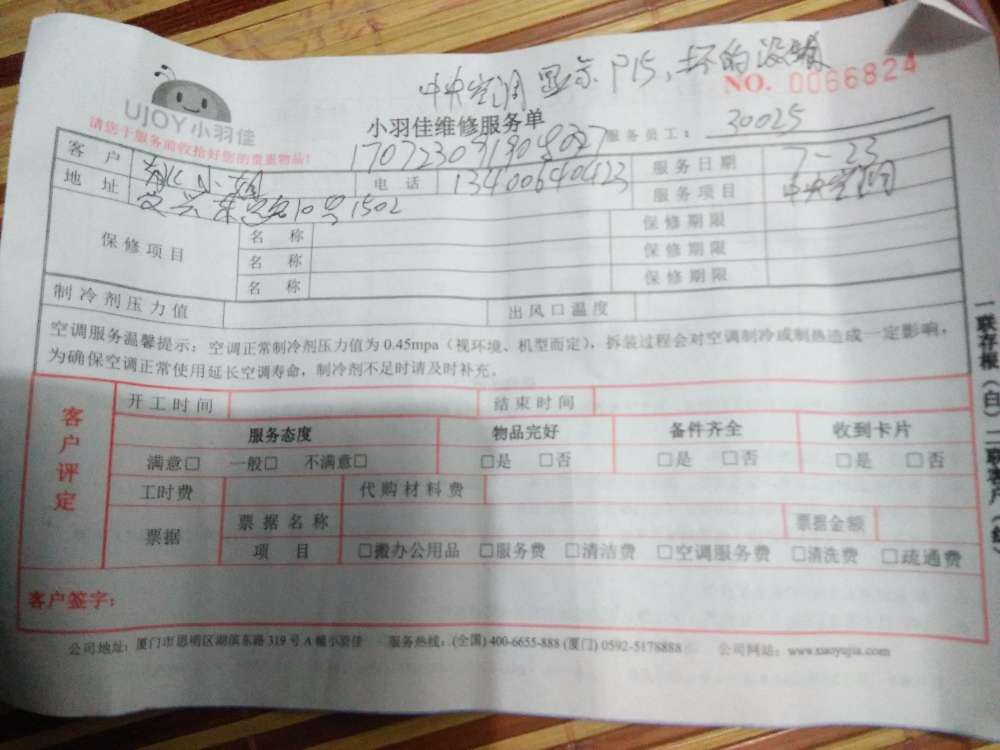 中央空调显示P15,坏的没
NO. 0066824
UJOY小羽佳
小羽佳维修服务单
请您于服务前收拾好您的贵重物品!
170723091904027
服务员工: 30025
客户 小姐 电话 13400640423 服务日期 7-23
地址 10号1502 服务项目 中央空调
保修项目 名称 保修期限
名称 保修期限
名称 保修期限
制冷剂压力值 出风口温度
空调服务温馨提示:空调正常制冷剂压力值为0.45mpa(视环境、机型而定),拆装过程会对空调制冷或制热造成一定影响,
为确保空调正常使用延长空调寿命,制冷剂不足时请及时补充。
客户评定
开工时间 结束时间
服务态度 物品完好 备件齐全 收到卡片
满意□ 一般□ 不满意□ □是 □否 □是 □否 □是 □否
工时费 代购材料费
票据 票据名称 票据金额
项目 □搬办公用品 □服务费 □清洁费 □空调服务费 □清洗费 □疏通费
客户签字:
公司地址:厦门市思明区湖滨东路319号A幢小羽佳 服务热线:(全国)400-6655-888(厦门)0592-5178888 公司网站:www.xiaoyujia.com
一联存根(白)二联客户(红)